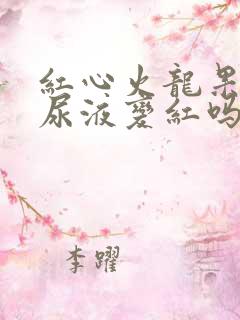 紅心火龍果
尿液變紅嗎
李躍